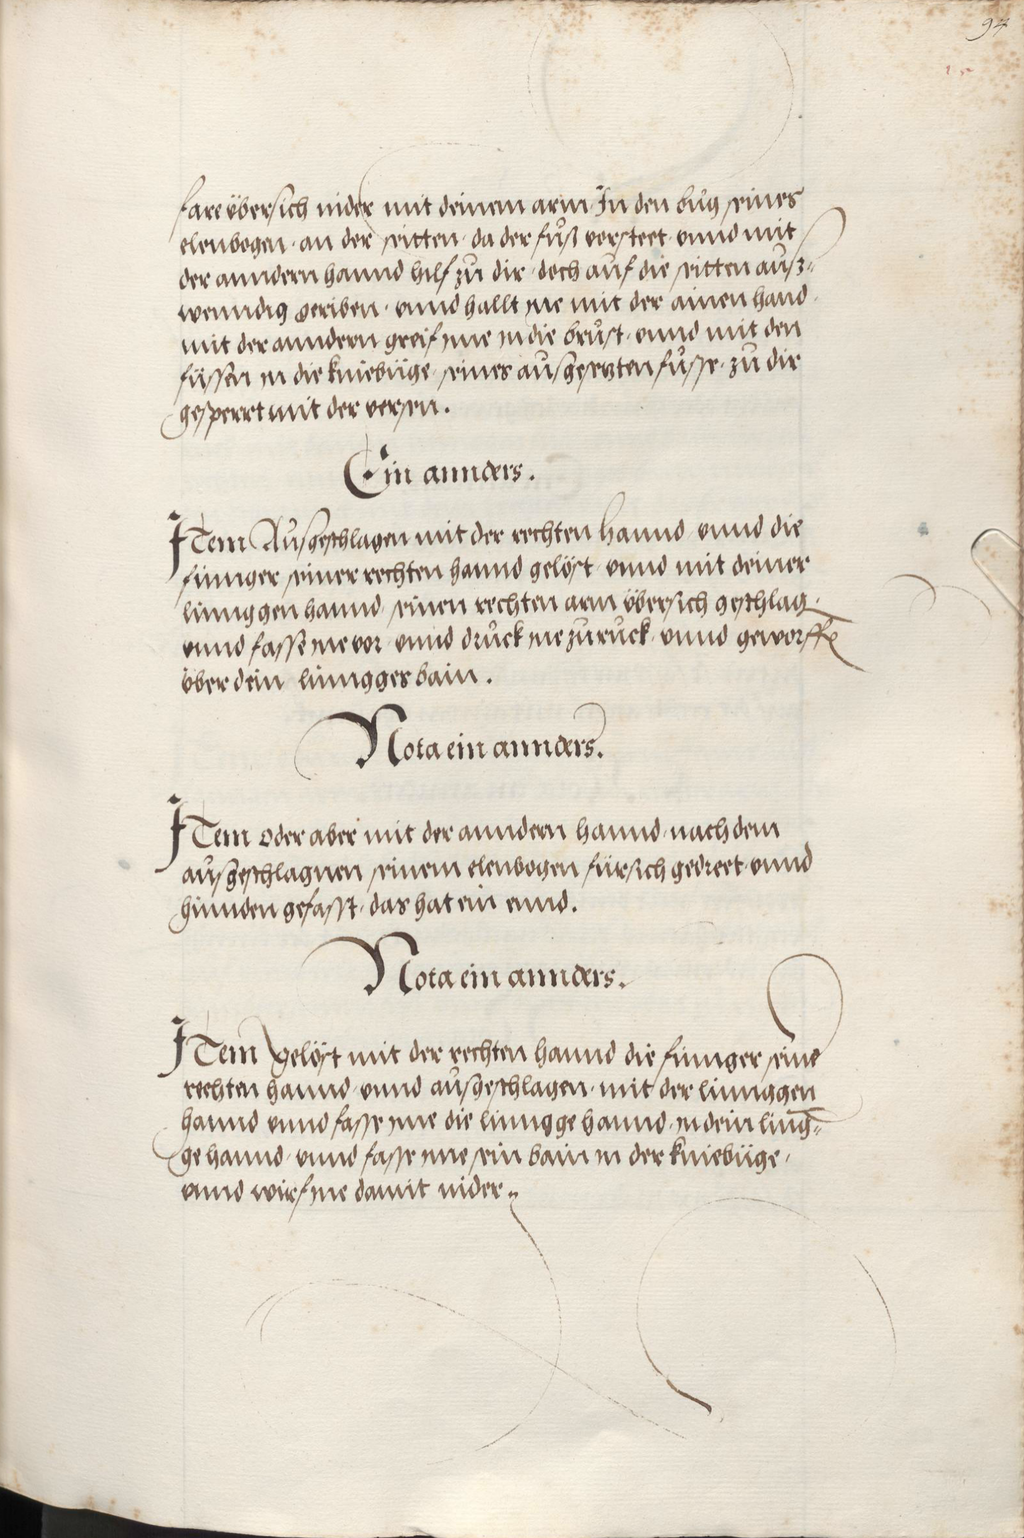 94
fare übersich nider mit deinem arm In den bug seines
elenbogen · an der seitten · da der fuͦß vorsteet · vnnd mit
der anndern hannd hilf zu dir · doch auf die seitten ausz=
wenndig geriben · vnnd hallt ine mit der ainen hand ·
mit der anndern greif ime in die brust · vnnd mit den
füssen in die kniebüge · seines ausgesetzten fuͦsse · zu dir
gesperrt mit der versen .
Ein annders .
Item Ausgeschlagen mit der rechten hannd · vnnd die
finnger seiner rechten hannd gelöst · vnnd mit deiner
linnggen hannd · seinen rechten arm übersich geschlag ·
vnnd fasse ine vor · vnnd druck ine zuruck · vnnd geworffē
über dein linngges bain .
Nota ein annders .
Item oder aber mit der anndern hannd · nach dem
ausgeschlagnen seinem elenbogen fürsich gedreet · vnnd
hinnden gefasst · das hat ein ennd .
Nota ein annders .
Item gelöst mit der rechten hannd die finnger seine
rechten hannd · vnnd ausgeschlagen · mit der linnggen
hannd vnnd fasse ime die linngge hannd · in dein ling=
ge hannd · vnnd fasse ime sein bain in der kniebüge ·
vnnd wirf ine damit nider